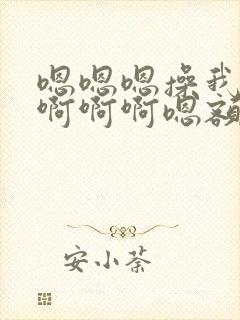 嗯嗯嗯操我
啊啊啊嗯额
安小荼